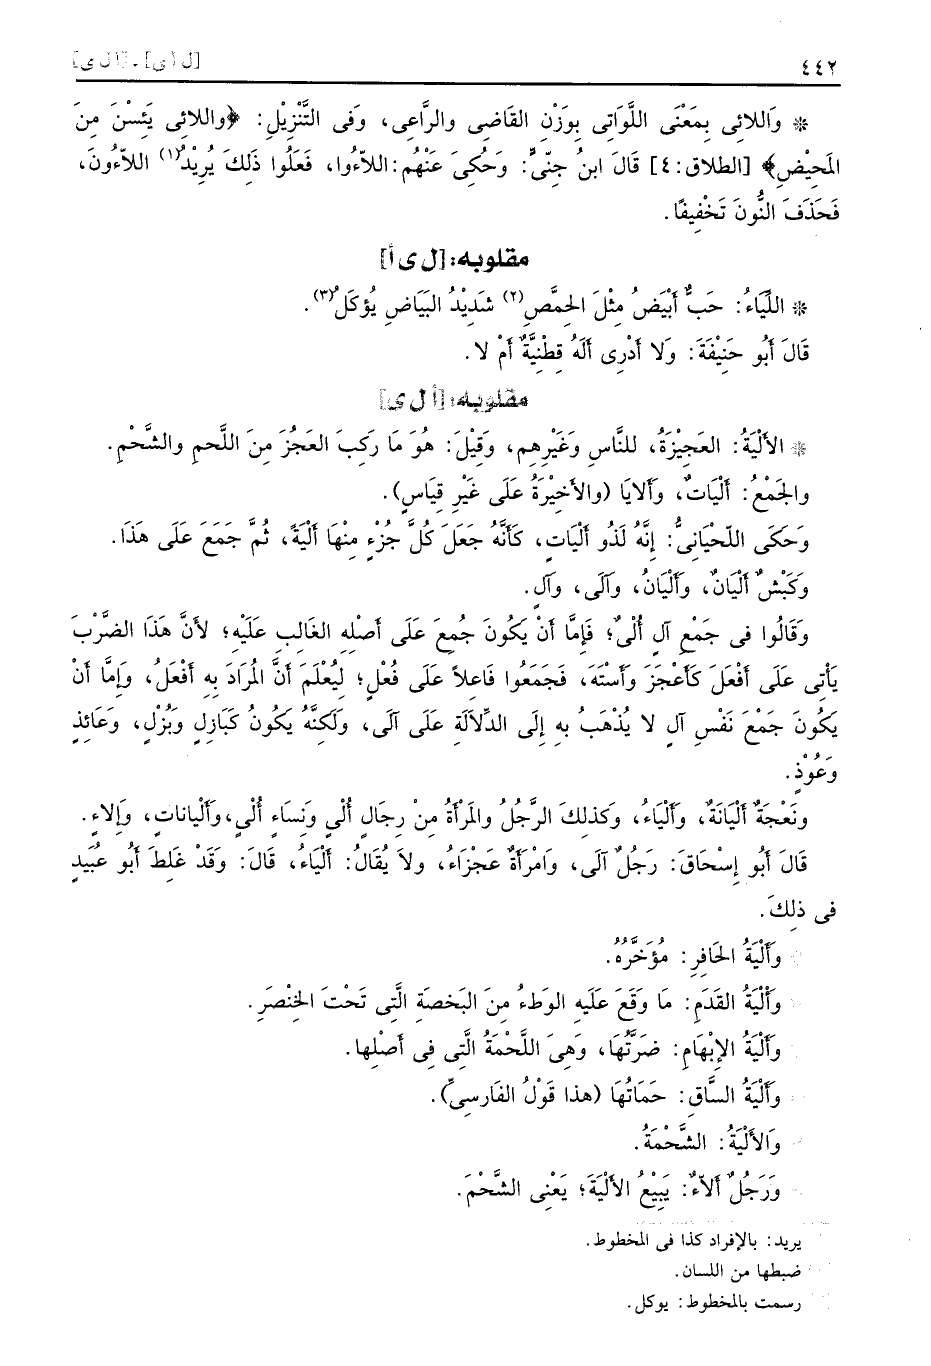 ٤٤٢ [ل أ ى] ـ [أ ل ى]
* وَاللائِى بِمَعْنَى اللَّوَاتِى بِوَزْنِ القَاضِى والرَّاعِى، وَفى التَّنْزِيْلِ: ﴿واللائِى يَئِسْنَ مِنَ
المَحِيْضِ﴾ [الطلاق: ٤] قَالَ ابنُ جِنِّىٍّ: وَحُكِىَ عَنْهُم: اللاّءُوا، فَعَلُوا ذَلِكَ يُرِيْدُ(١) اللاّءُونَ،
فَحَذَفَ النُّونَ تَخْفِيفًا.
مقلوبه: [ل ى أ]
* اللِّيَاءُ: حَبٌّ أَبْيَضُ مِثْلَ الحِمَّصِ(٢) شَدِيْدُ البَيَاضِ يُؤكَلُ(٣).
قَالَ أَبُو حَنِيْفَةَ: وَلا أَدْرِى أَلَهُ قِطْنِيَّةٌ أَمْ لا.
مقلوبه: [أ ل ى]
* الأَلْيَةُ: العَجِيْزَةُ، للنَّاسِ وَغَيْرِهِم، وَقِيْلَ: هُوَ مَا رَكِبَ العَجُزَ مِنَ اللَّحمِ والشَّحْمِ.
والجَمْعُ: أَلْيَاتٌ، وَأَلايَا (والأَخِيْرَةُ عَلَى غَيْرِ قِيَاسٍ).
وَحَكَى اللّحْيَانِىُّ: إِنَّهُ لَذُو أَلْيَاتٍ، كَأنَّهُ جَعَلَ كُلَّ جُزْءٍ مِنْهَا أَلْيَةً، ثُمَّ جَمَعَ عَلَى هَذَا.
وَكَبْشٌ أَلْيَانٌ، وَأَلْيَانُ، وَآلَى، وَآلٍ.
وَقَالُوا فى جَمْعِ آلٍ أُلْىٌ؛ فَإِمَّا أَنْ يَكُونَ جُمِعَ عَلَى أَصْلِهِ الغَالِبِ عَلَيْهِ؛ لأنَّ هَذَا الضَّرْبَ
يَأتِى عَلَى أَفْعَلَ كَأعْجَزَ وَأَسْتَه، فَجَمَعُوا فَاعِلاً عَلَى فُعْلٍ؛ لِيُعْلَمَ أَنَّ المُرَادَ بِهِ أَفْعَلُ، وَإِمَّا أَنْ
يَكُونَ جَمْعَ نَفْسِ آلٍ لا يُذْهَبُ بِهِ إِلَى الدِّلاَلَةِ عَلَى آلَى، وَلَكِنَّهُ يَكُونُ كَبَازِلٍ وَبُزْلٍ، وَعَائِذٍ
وَعُوْذٍ.
وَنَعْجَةٌ أَلْيَانَةٌ، وَأَلْيَاءُ، وَكَذلِكَ الرَّجُلُ والمَرْأَةُ مِنْ رِجَالٍ أُلْىٍ وَنِسَاءٍ أُلْىٍ، وَأَلْيَانَاتٍ، وَإِلاءٍ.
قَالَ أَبُو إِسْحَاقَ: رَجُلٌ آلَى، وَامْرَأَةٌ عَجْزَاءُ، ولاَ يُقَالُ: أَلْيَاءُ، قَالَ: وَقَدْ غَلِطَ أَبُو عُبَيْدٍ
فى ذلِكَ.
* وَأَلْيَةُ الحَافِرِ: مُؤَخَّرُهُ.
* وَأَلْيَةُ القَدَمِ: مَا وَقَعَ عَلَيهِ الوَطءُ مِنَ البَخصَةِ الَّتِى تَحْتَ الخِنْصَرِ.
* وَأَلْيَةُ الإِبْهَامِ: ضَرَّتُهَا، وَهِىَ اللَّحْمَةُ الَّتِى فى أَصْلِهَا.
* وَأَلْيَةُ السَّاقِ: حَمَاتُهَا (هذا قَوْلُ الفَارِسىِّ).
* وَالأَلْيَةُ: الشَّحْمَةُ.
* وَرَجُلٌ أَلاّءٌ: يَبِيْعُ الأَلْيَةَ؛ يَعْنِى الشَّحْمَ.
يريد: بالإفراد كذا فى المخطوط.
ضبطها من اللسان.
رسمت بالمخطوط: يوكل.